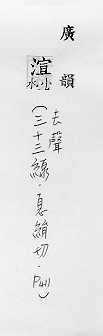 廣韻
渲
去聲
（三十三線．息絹切．P411）